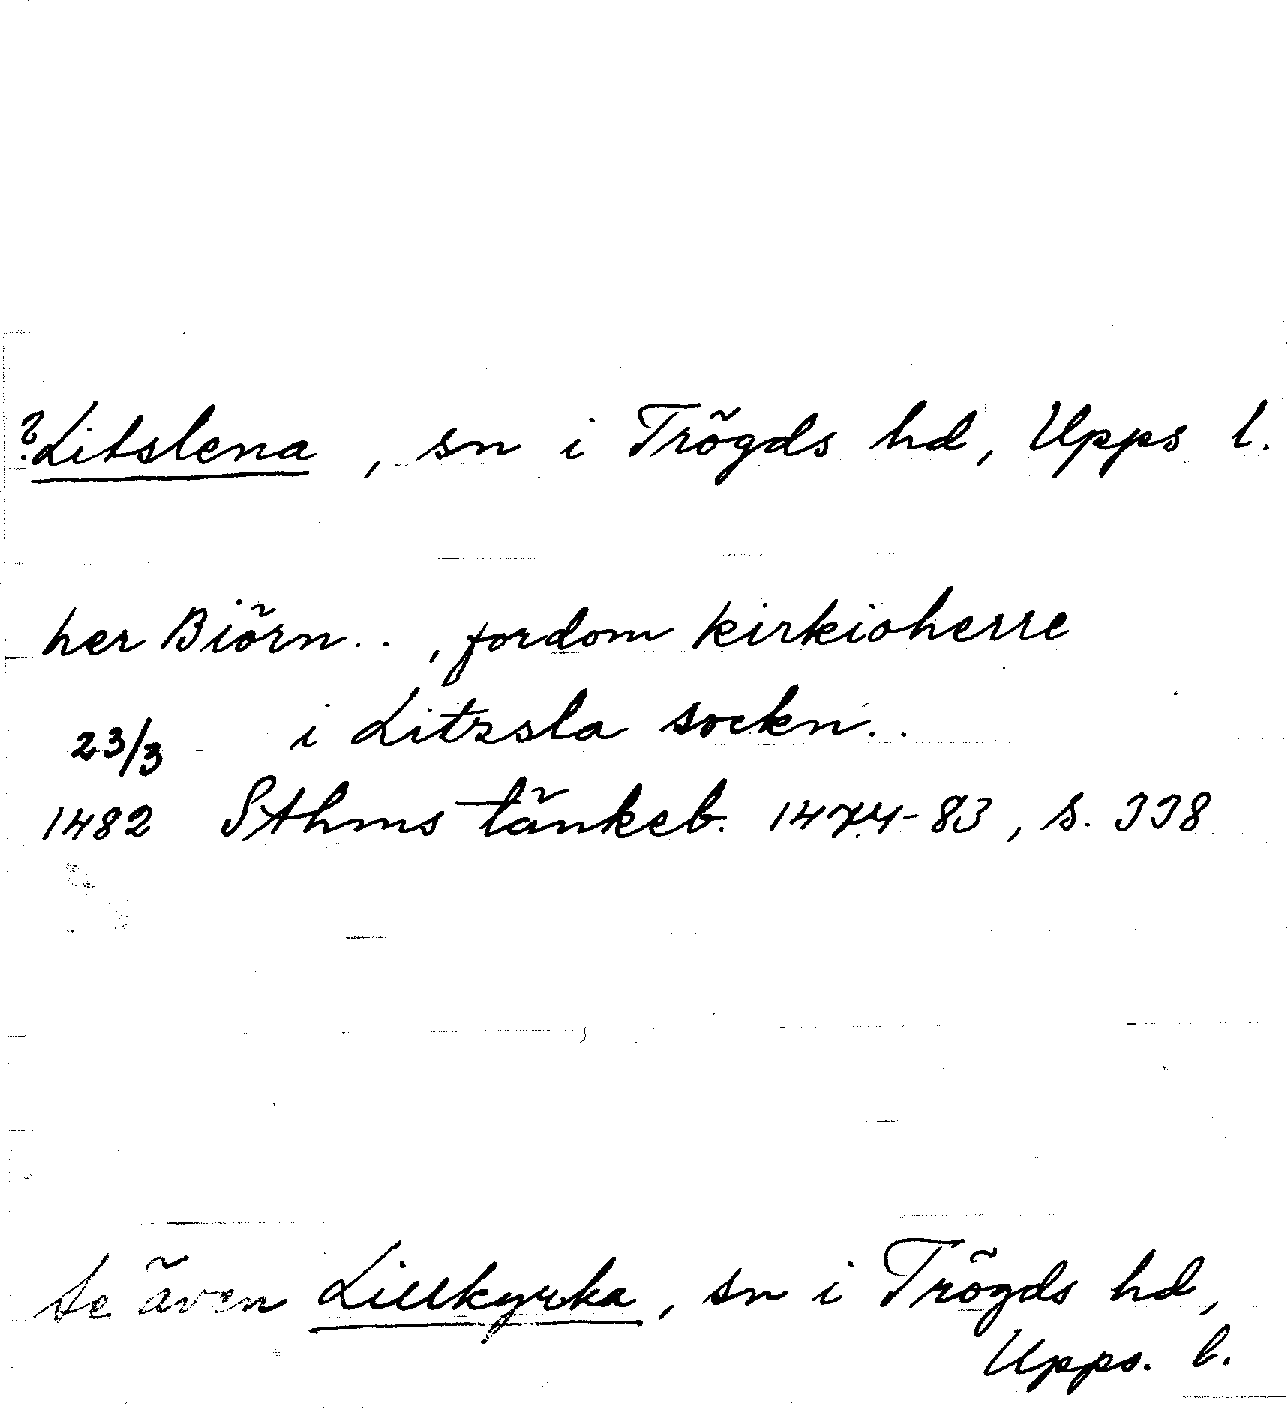 ?Litslena, sn i Trögds hd, Upps l.
her Biörn.., fordom kirkioherre
23/3 i Litzsla sockn..
1482 Sthms tänkeb. 1474-83, s. 338
Se även Lillkyrka, sn i Trögds hd,
Upps. l.